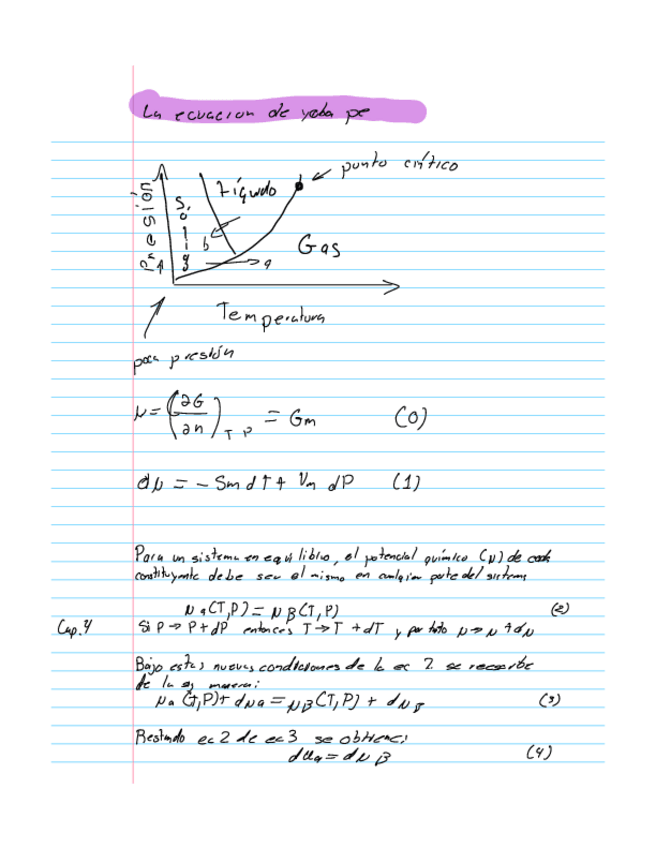 La ecuacion de
punto crítico
Líquido
Presión
Sólido
b
a
Gas
Temperatura
poca presión
μ = (∂G/∂n)T P = Gm (0)
dμ = - Sm dT + Vm dP (1)
Para un sistema en equilibrio, el potencial químico (μ) de cada
constituyente debe ser el mismo en cualquier parte del sistema
μa(T,P) = μβ(T,P) (2)
Cap. 4
Si P → P + dP entonces T → T + dT y por tanto μ → μ + dμ
Bajo estas nuevas condiciones de la ec 2 se reescribe
de la sig manera:
μa (T,P) + dμa = μβ(T,P) + dμβ (3)
Restando ec 2 de ec 3 se obtiene:
dμa = dμβ (4)